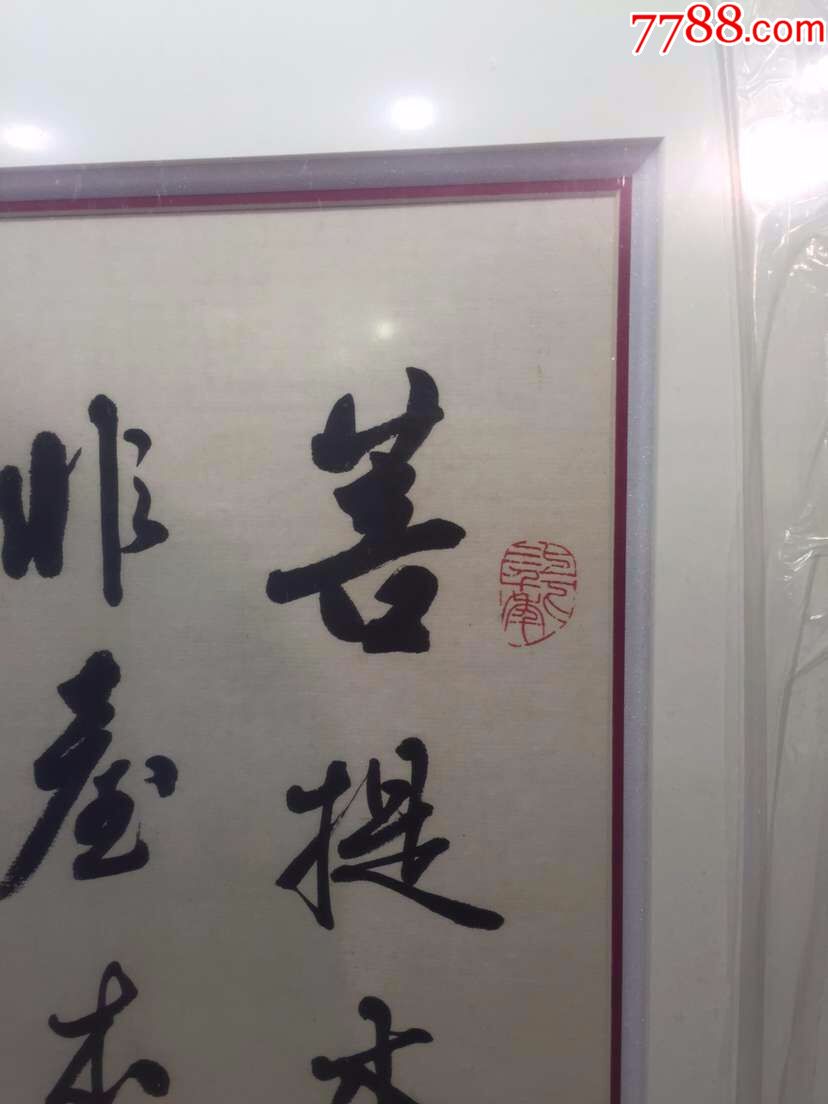 7788.com
菩提本
非臺本